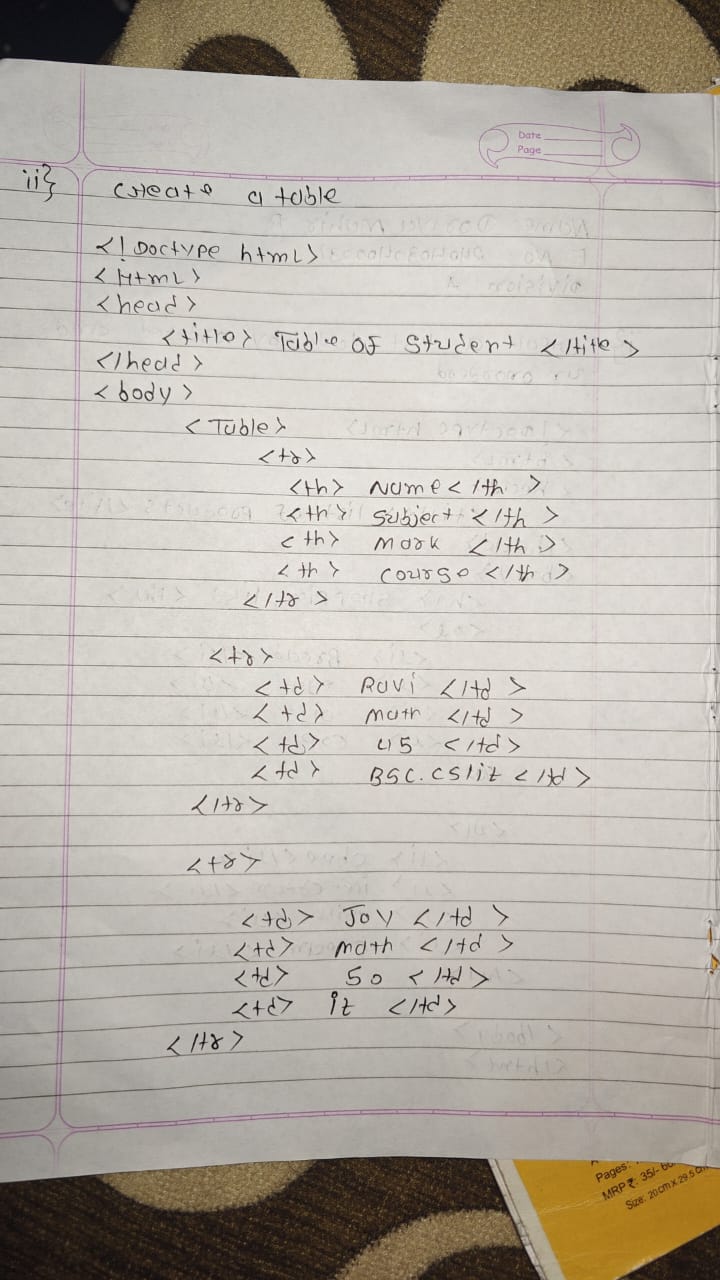 Date
Page
ii} Create a table
<! Doctype html>
<Html>
<head>
<title> Table of Student </title>
</head>
<body>
<Table>
<tr>
<th> Name </th>
<th> Subject </th>
<th> Mark </th>
<th> Course </th>
</tr>
<tr>
<td> Ravi </td>
<td> math </td>
<td> 45 </td>
<td> BSC.CS/it </td>
</tr>
<tr>
<td> Joy </td>
<td> math </td>
<td> 50 </td>
<td> it </td>
</tr>
Pages:
MRP ₹: 35/-
Size: 20cm x 29.5 cm